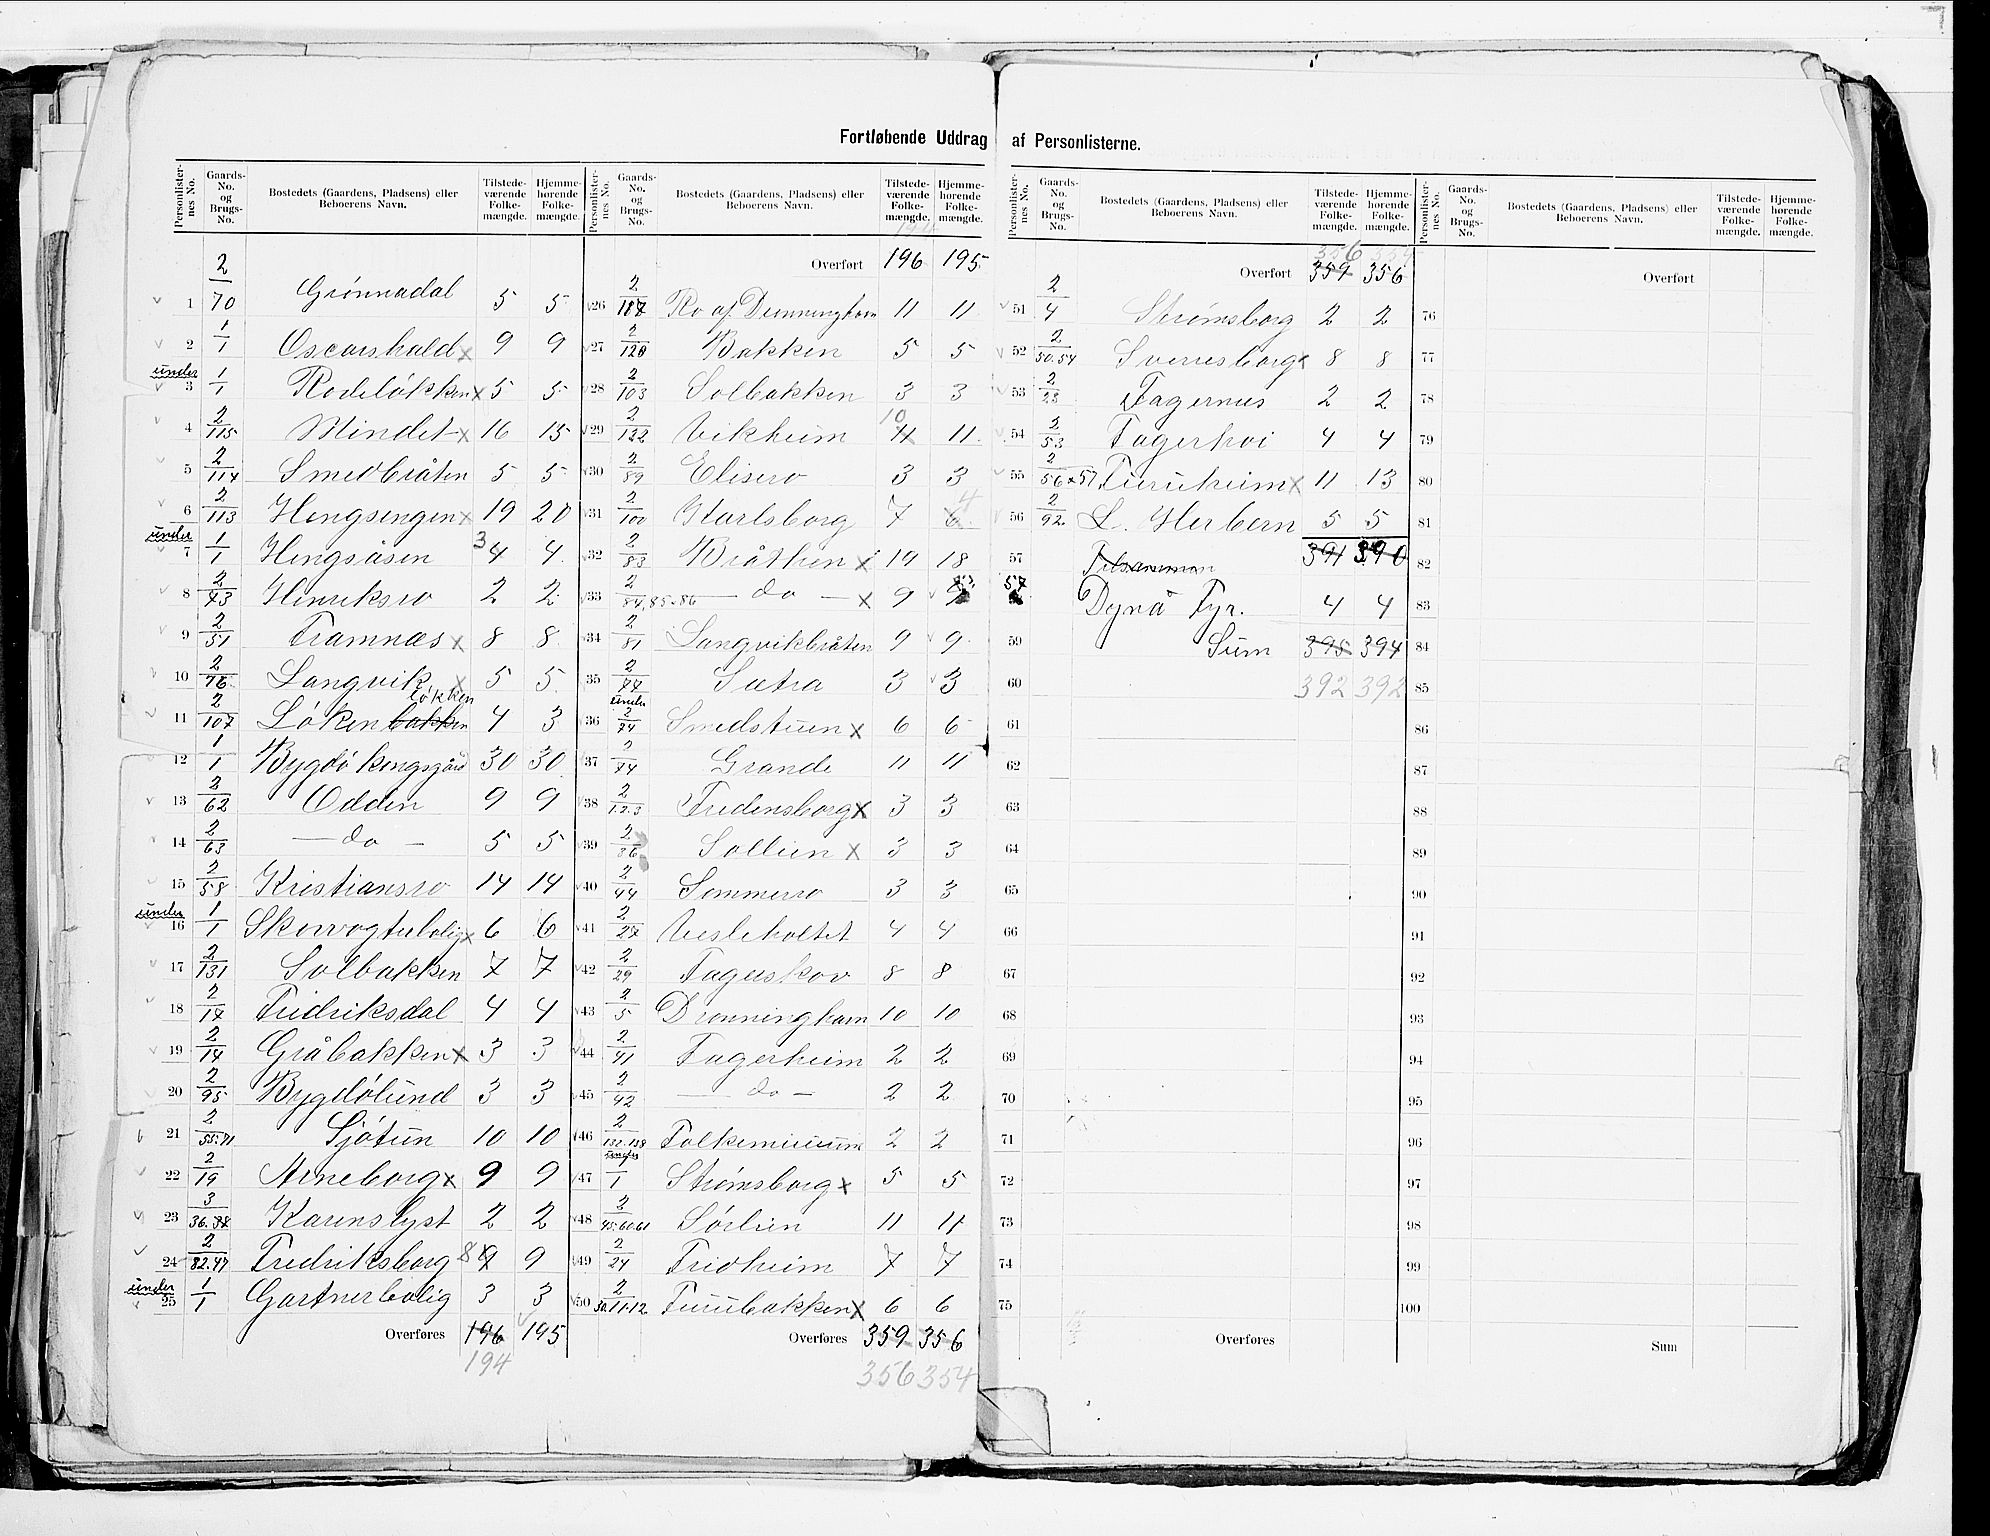 Fortløbende Uddrag af Personlisterne.
Personlister-nes No. Gaards-No. og Brugs-No. Bostedets (Gaardens, Pladsens) eller Beboerens Navn. Tilstede-værende Folke-mængde. Hjemme-hørende Folke-mængde.
1 2/70 Grönnadal 5 5
2 1/1 Oscarshald x 9 9
under
3 1/1 Rodeløkken x 5 5
4 2/115 Mindet x 16 15
5 2/114 Smedbråten 5 5
6 2/113 Hengsengen x 19 20
under
7 1/1 Hengsåsen 3 4 4
8 2/43 Henriksro 2 2
9 2/51 Framnæs x 8 8
10 2/76 Langvik x 5 5
løkken
11 2/107 Löken bakken 4 3
12 1/1 Bygdö Kongsgård 30 30
13 2/62 Odden 9 9
14 2/63 — do — 5 5
15 2/58 Kristiansro 14 14
under
16 1/1 Skovvogterbolig x 6 6
17 2/131 Solbakken 7 7
18 2/17 Fridriksdal 4 4
19 2/14 Gråbakken x 3 3
20 2/95 Bygdölund 3 3
21 2/55.71 Sjötun 10 10
22 2/19 Arneborg x 9 9
23 3/36.37 Karenslyst 2 2
24 2/82.47 Fredriksborg 8 9 9
under
25 1/1 Gartnerbolig 3 3
Overføres 196 195
194
Personlister-nes No. Gaards-No. og Brugs-No. Bostedets (Gaardens, Pladsens) eller Beboerens Navn. Tilstede-værende Folke-mængde. Hjemme-hørende Folke-mængde.
194
Overført 196 195
26 2/187 Ro af Dronninghavn 11 11
27 2/120 Bakken 5 5
28 2/103 Solbakken 3 3
29 2/122 Vikheim 10 11 11
30 2/89 Elisero 3 3
31 2/100 Karlsborg 7 6 4
32 2/83 Bråthen x 19 18
33 2/84,85-86 — do — x 9 9
34 2/81 Langvikbråten 9 9
35 2/77 Sætra 3 3
under
36 2/74 Smedstuen x 6 6
37 2/74 Grande 11 11
38 2/1.2.3 Fredensborg x 3 3
39 2/36 Sollien x 3 3
40 2/44 Sommerro 3 3
41 2/27 Vesleholtet 4 4
42 2/29 Fagerskov 8 8
43 2/5 Dronninghavn 10 10
44 2/41 Fagerheim 2 2
45 2/42 — do — 2 2
46 2/132.138 Folkemuseum 2 2
under
47 1/1 Strømsborg x 5 5
48 2/45.60.61 Sörlien 11 11
49 2/24 Fridheim 7 7
50 2/30.11.12 Furubakken x 6 6
Overføres 359 356
356 354
Personlister-nes No. Gaards-No. og Brugs-No. Bostedets (Gaardens, Pladsens) eller Beboerens Navn. Tilstede-værende Folke-mængde. Hjemme-hørende Folke-mængde.
356 354
Overført 359 356
51 2/4 Strömsborg 2 2
52 2/50.54 Sverresborg x 8 8
53 2/23 Fagernes 2 2
54 2/53 Fagerhöi 4 4
55 2/56x57 Furuheim x 11 13
56 2/92 L. Herbern 5 5
57 Tilsammen 391 390
57 Dynå Fyr. 4 4
59 Sum 395 394
60 392 392
61
62
63
64
65
66
67
68
69
70
71
72
73
74
75
Overføres
Personlister-nes No. Gaards-No. og Brugs-No. Bostedets (Gaardens, Pladsens) eller Beboerens Navn. Tilstede-værende Folke-mængde. Hjemme-hørende Folke-mængde.
Overført
76
77
78
79
80
81
82
83
84
85
86
87
88
89
90
91
92
93
94
95
96
97
98
99
100
Sum